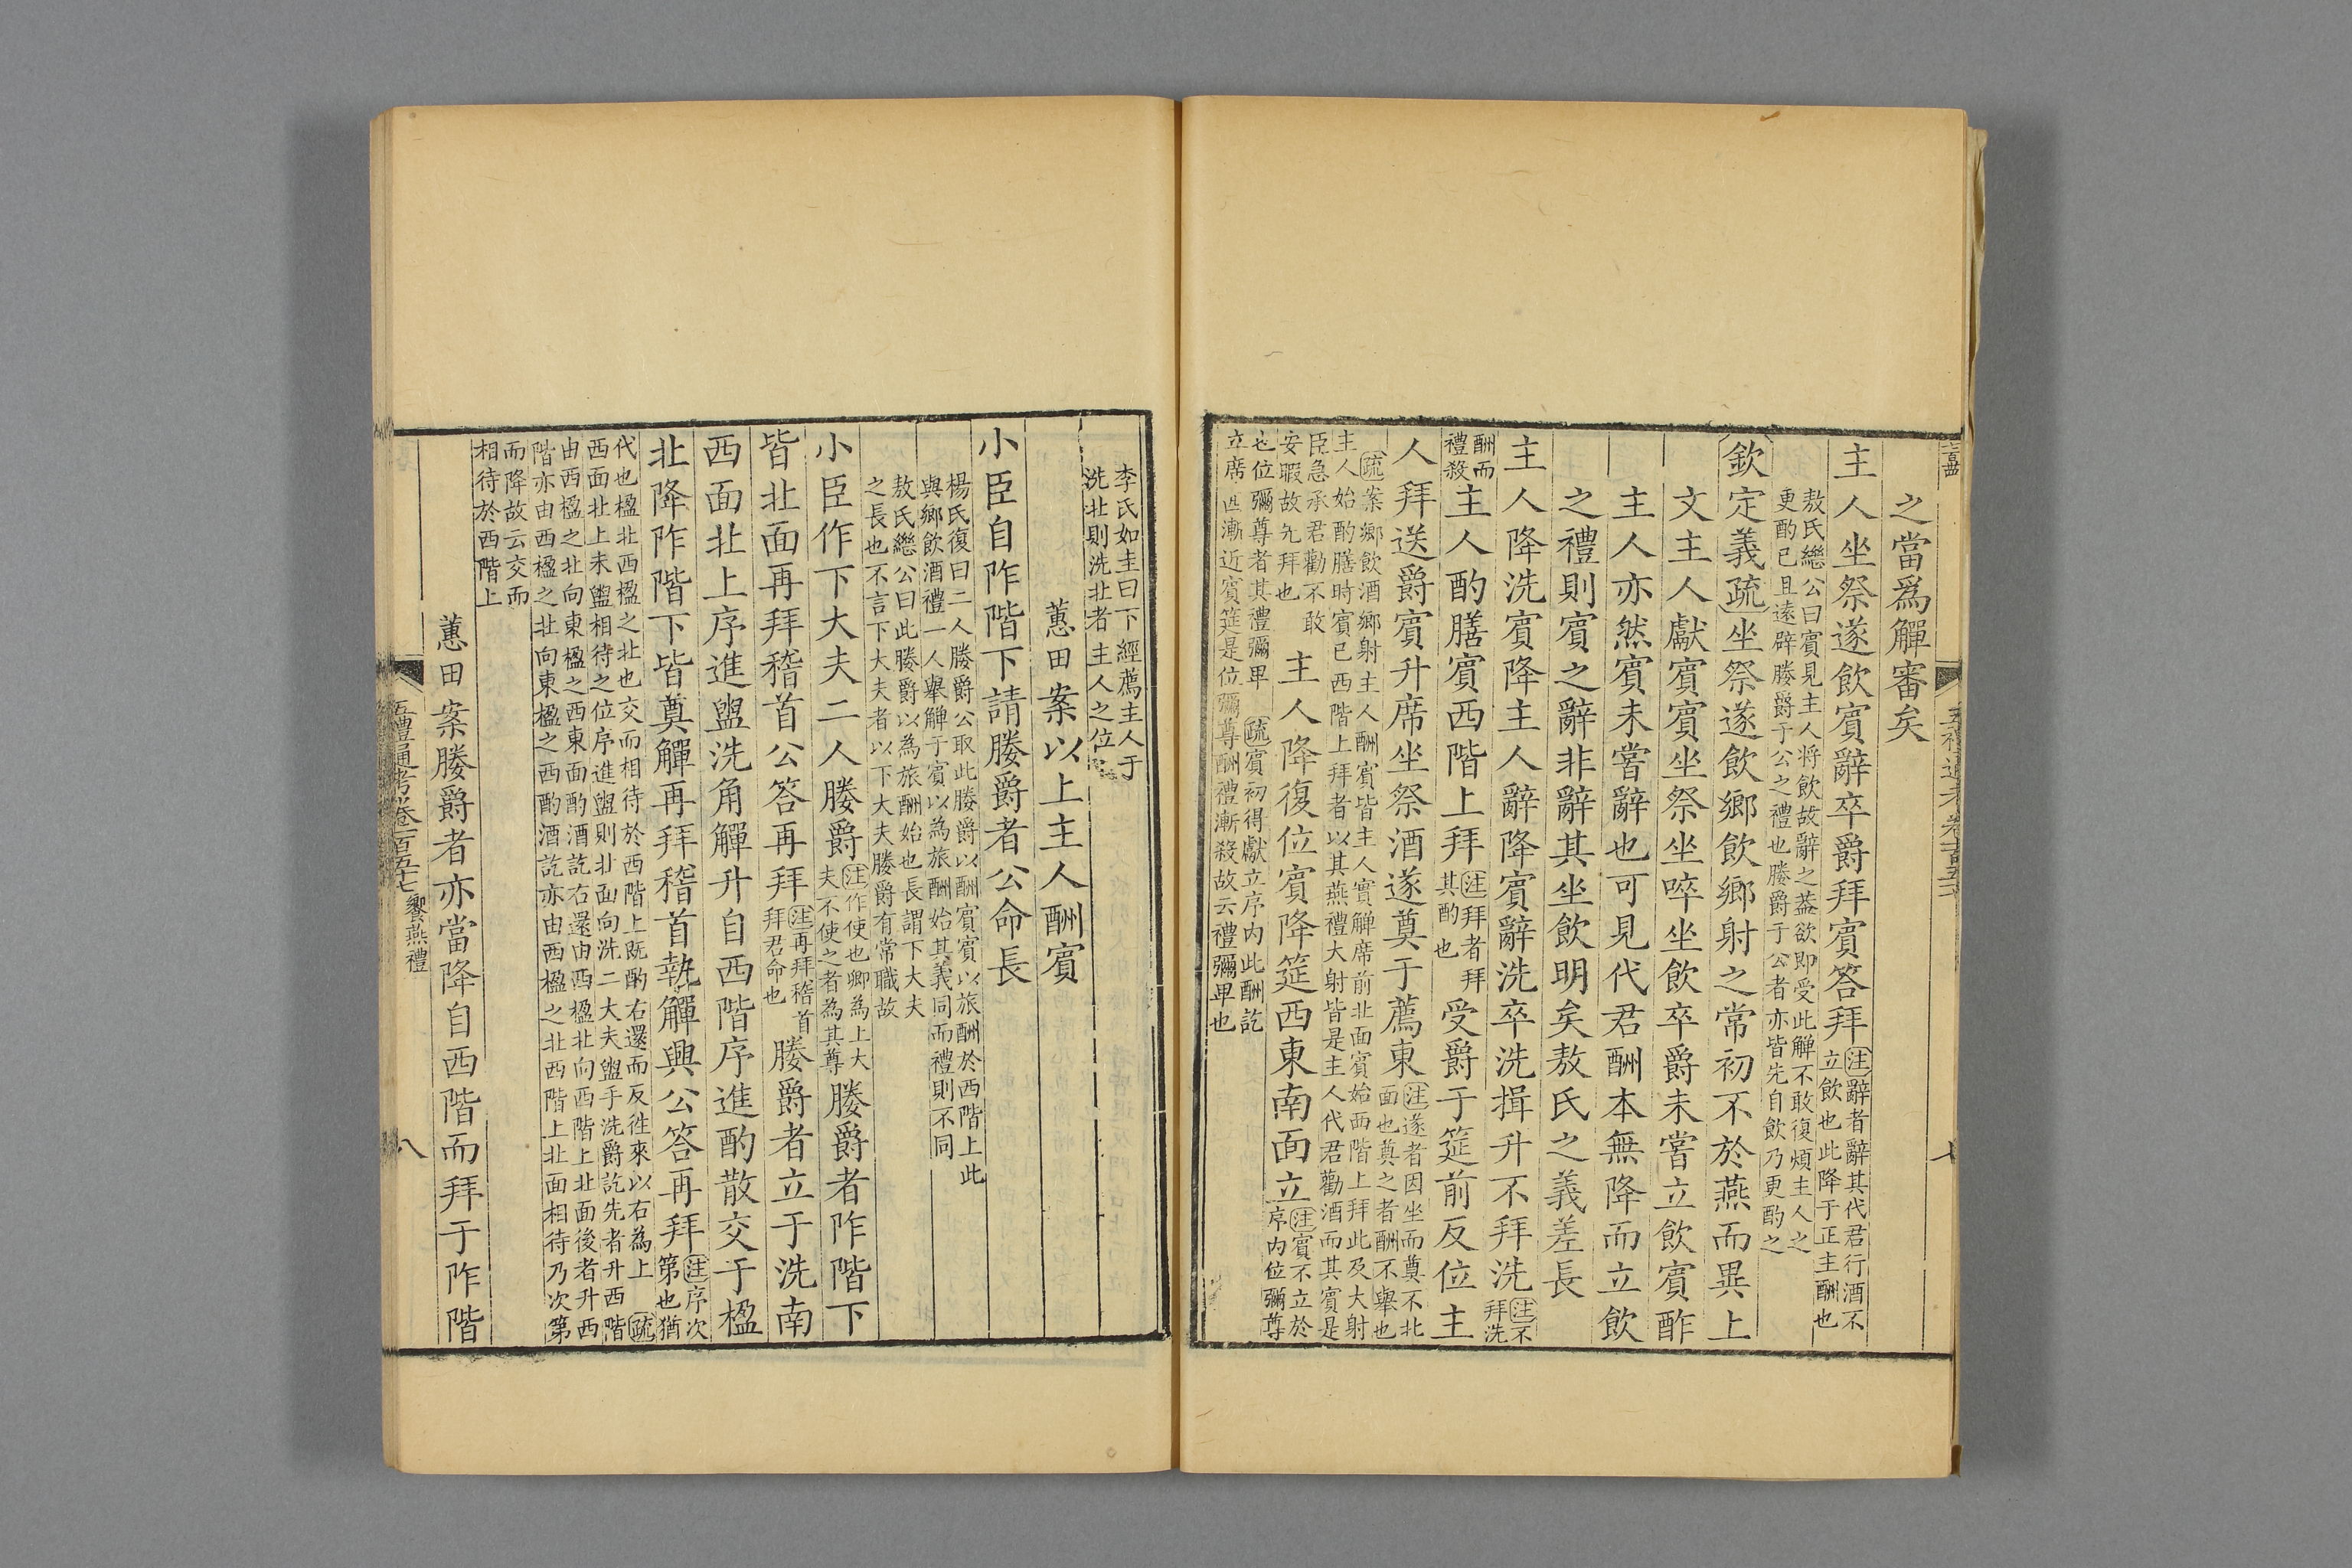 之當爲觶審矣
主人坐祭遂飲賓辭卒爵拜賓答拜注辭者辭其代君行酒不
立飲也此降于正主酬也
敖氏繼公曰賓見主人將飲故辭之蓋欲即受此觶不敢復煩主人之
更酌已且遠辟媵爵于公之禮也媵爵于公者亦皆先自飲乃更酌之
欽定義疏坐祭遂飲鄉飲鄉射之常初不於燕而異上
文主人獻賓賓坐祭坐啐坐飲卒爵未嘗立飲賓酢
主人亦然賓未嘗辭也可見代君酬本無降而立飲
之禮則賓之辭非辭其坐飲明矣敖氏之義差長
主人降洗賓降主人辭降賓辭洗卒洗揖升不拜洗注不
拜洗
酬而
禮殺主人酌膳賓西階上拜注拜者拜
其酌也受爵于筵前反位主
人拜送爵賓升席坐祭酒遂奠于薦東注遂者因坐而奠不北
面也奠之者酬不舉也
疏案鄉飲酒鄉射主人酬賓皆主人實觶席前北面賓始西階上拜此及大射
主人始酌膳時賓已西階上拜者以其燕禮大射皆是主人代君勸酒而其賓是
臣急承君勸不敢
安暇故先拜也主人降復位賓降筵西東南面立注賓不立於
序內位彌尊
也位彌尊者其禮彌卑疏賓初得獻立序內此酬訖
立席西漸近賓筵是位彌尊酬禮漸殺故云禮彌卑也
李氏如圭曰下經薦主人于
洗北則洗北者主人之位
蕙田案以上主人酬賓
小臣自阼階下請媵爵者公命長
楊氏復曰二人媵爵公取此媵爵以酬賓賓以旅酬於西階上此
與鄉飲酒禮一人舉觶于賓以為旅酬始其義同而禮則不同
敖氏繼公曰此媵爵以為旅酬始也長謂下大夫
之長也不言下大夫者以下大夫媵爵有常職故
小臣作下大夫二人媵爵注作使也卿為上大
夫不使之者為其尊媵爵者阼階下
皆北面再拜稽首公答再拜注再拜稽首
拜君命也媵爵者立于洗南
西面北上序進盥洗角觶升自西階序進酌散交于楹
北降阼階下皆奠觶再拜稽首執觶興公答再拜注序次
第也猶
代也楹北西楹之北也交而相待於西階上既酌右還而反徃來以右為上疏
西面北上未盥相待之位序進盥則北面向洗二大夫盥手洗爵訖先者升西階
由西楹之北向東楹之西東面酌酒訖右還由西楹北向西階上北面後者升西
階亦由西楹之北向東楹之西酌酒訖亦由西楹之北西階上北面相待乃次第
而降故云交而
相待於西階上
蕙田案媵爵者亦當降自西階而拜于阼階
五禮通考卷一百五十七 饗燕禮
八